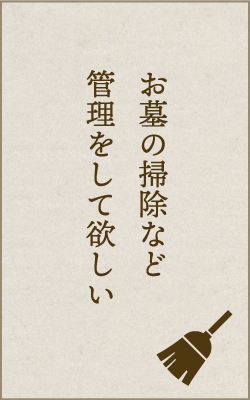 お墓の掃除など
管理をして欲しい